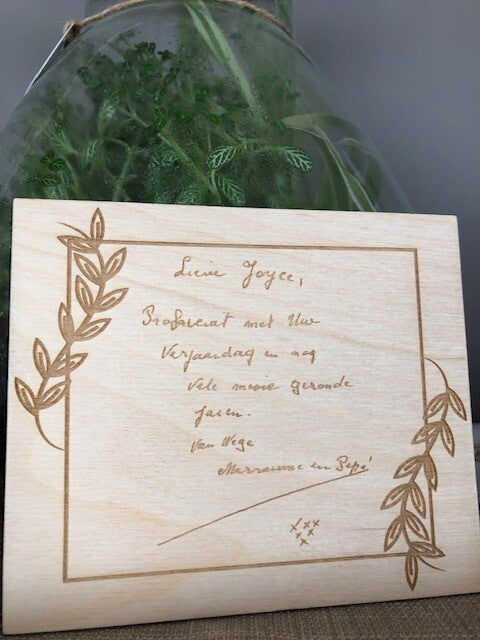 Lieve Joyce,
Proficiat met Uw
Verjaardag en nog
vele mooie gezonde
Jaren.
Van Wege
en Pépé
xxx
xx
x